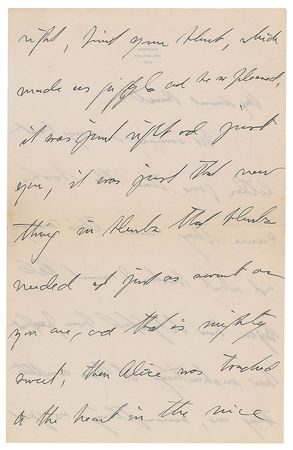 right, first your thank, which
made us giggle and be so pleased,
it was just right and just
you, it was just that new
thing in thanks that thanks
needed and just as sweet as
you are, and that is mighty
sweet, then Alice was touched
to the heart in the nice